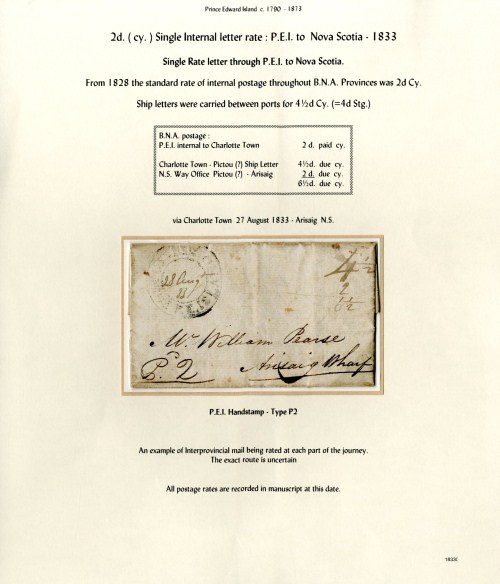 Prince Edward Island c. 1790 - 1873
2d. ( cy. ) Single Internal letter rate : P.E.I. to Nova Scotia - 1833
Single Rate letter through P.E.I. to Nova Scotia.
From 1828 the standard rate of internal postage throughout B.N.A. Provinces was 2d Cy.
Ship letters were carried between ports for 4½d Cy. (=4d Stg.)
B.N.A. postage :
P.E.I. internal to Charlotte Town 2 d. paid cy.
Charlotte Town - Pictou (?) Ship Letter 4½d. due cy.
N.S. Way Office Pictou (?) - Arisaig 2 d. due cy.
6½d. due cy.
via Charlotte Town 27 August 1833 - Arisaig N.S.
Aug
4½
2
6½
Mr William Pearse
Pd 2 Arisaig Wharf
P.E.I. Handstamp - Type P2
An example of Interprovincial mail being rated at each part of the journey.
The exact route is uncertain
All postage rates are recorded in manuscript at this date.